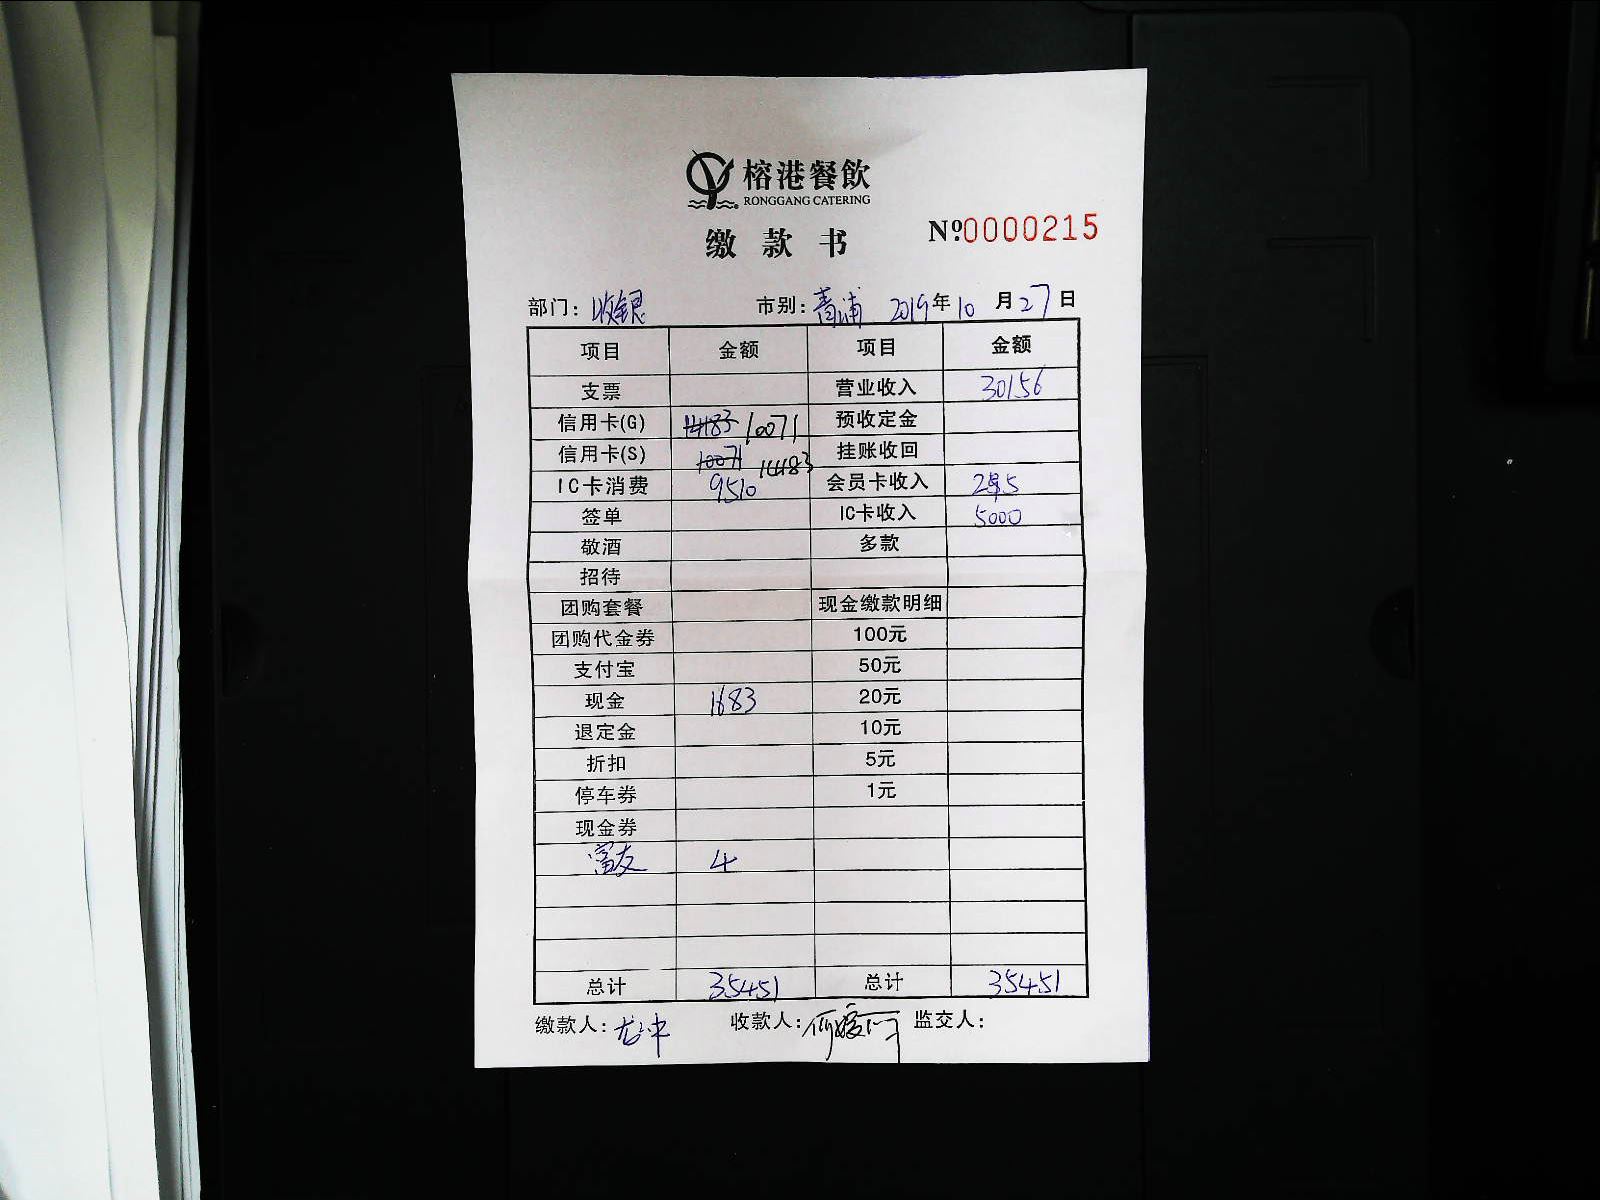 榕港餐飲
RONGGANG CATERING
缴款书 №0000215
部门：收银 市别：青浦 2019年10月27日
项目 金额 项目 金额
支票 营业收入 30156
信用卡(G) 14183 10071 预收定金
信用卡(S) 10071 14183 挂账收回
IC卡消费 9510 会员卡收入 295
签单 IC卡收入 5000
敬酒 多款
招待
团购套餐 现金缴款明细
团购代金券 100元
支付宝 50元
现金 1683 20元
退定金 10元
折扣 5元
停车券 1元
现金券
富友 4
总计 35451 总计 35451
缴款人： 收款人： 监交人：